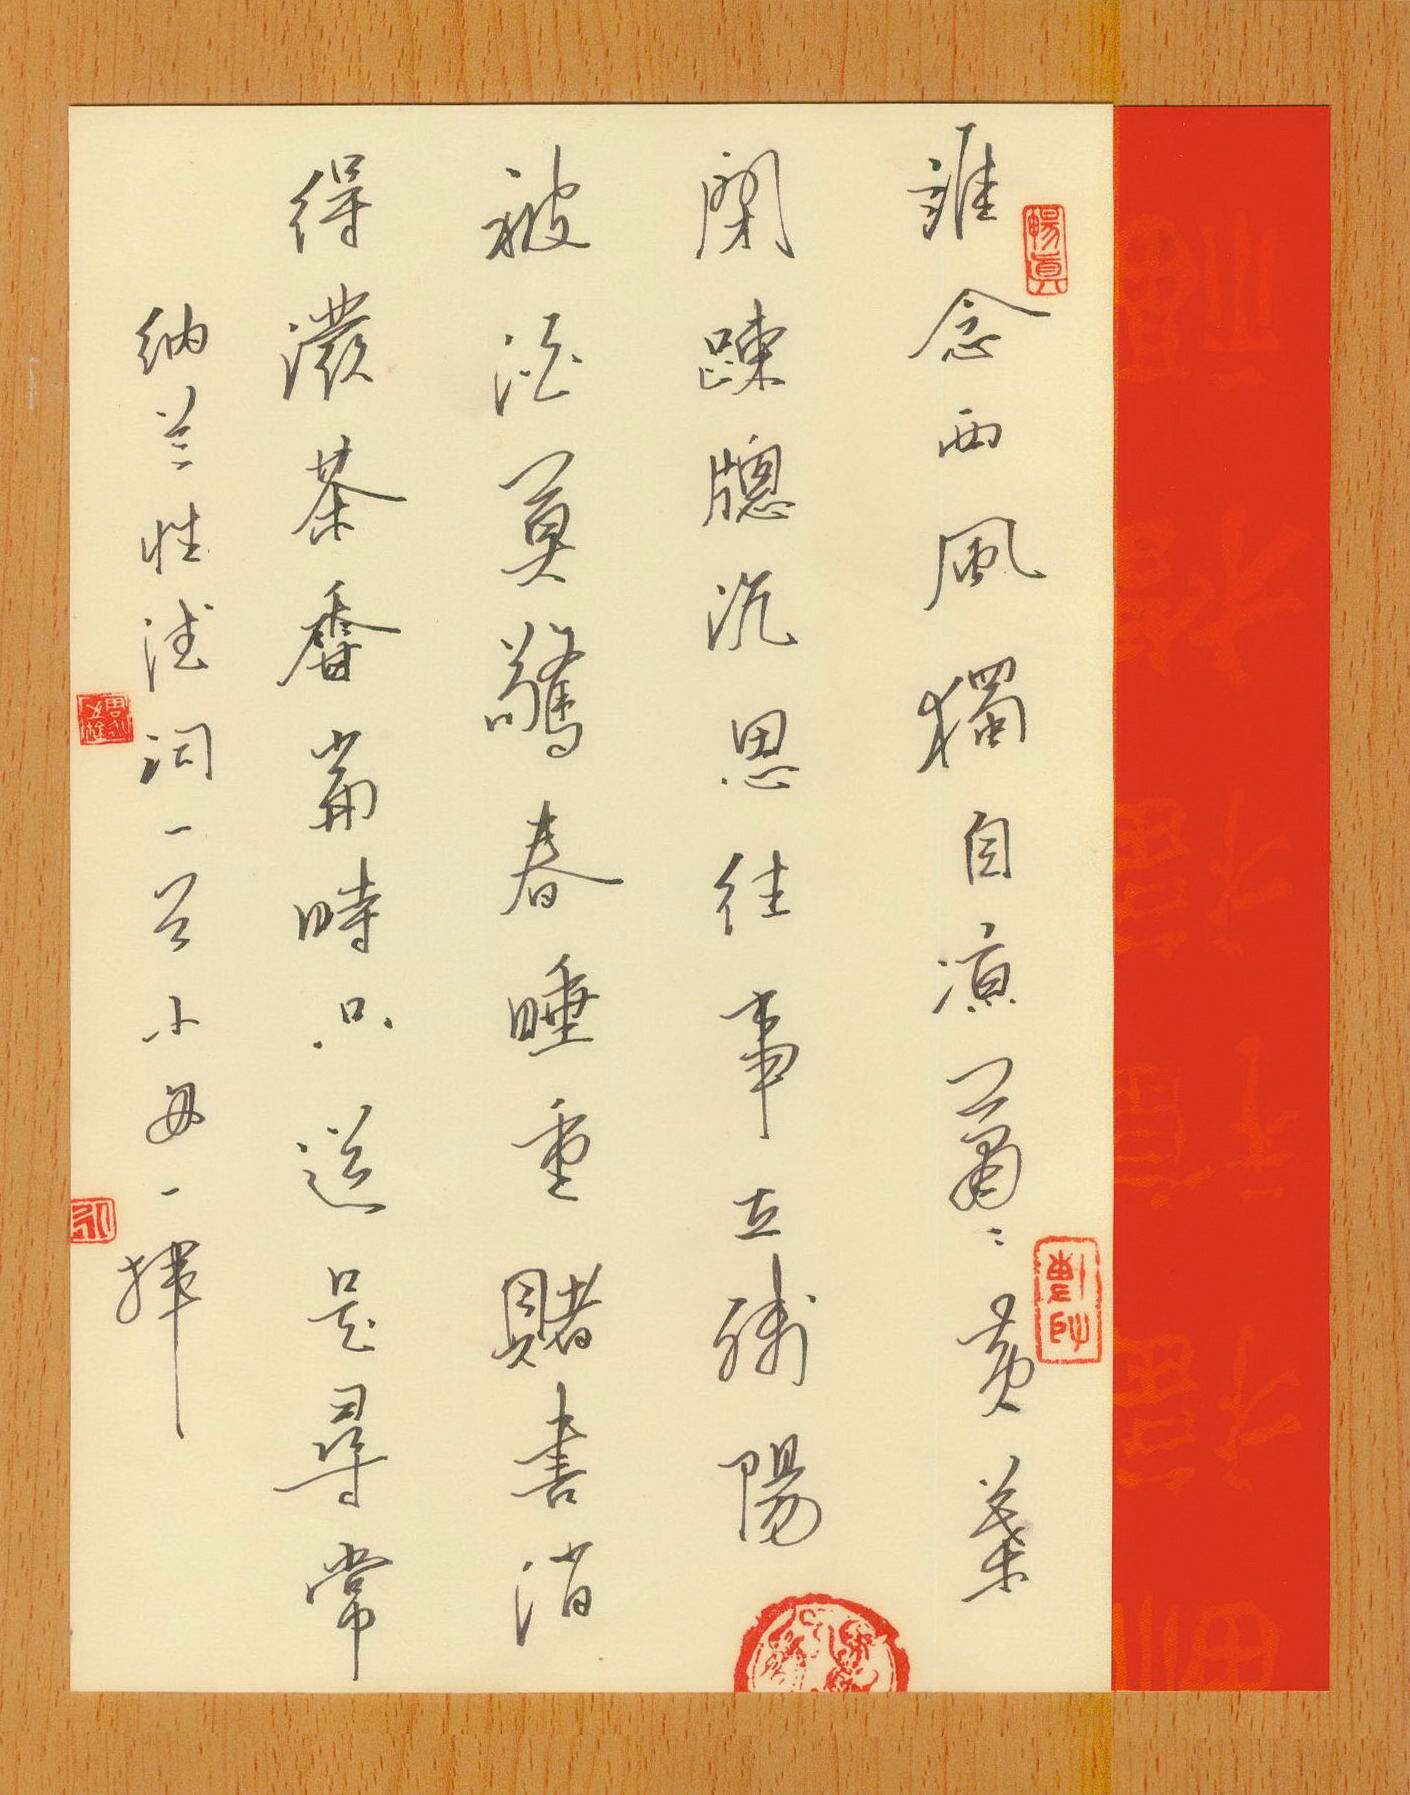 誰念西風獨自凉蕭〻黃葉
閉踈牕沉思往事立殘陽
被酒莫驚春睡重賭書消
得潑茶香當時只道是尋常
纳兰性德词一首小一揮
暢真